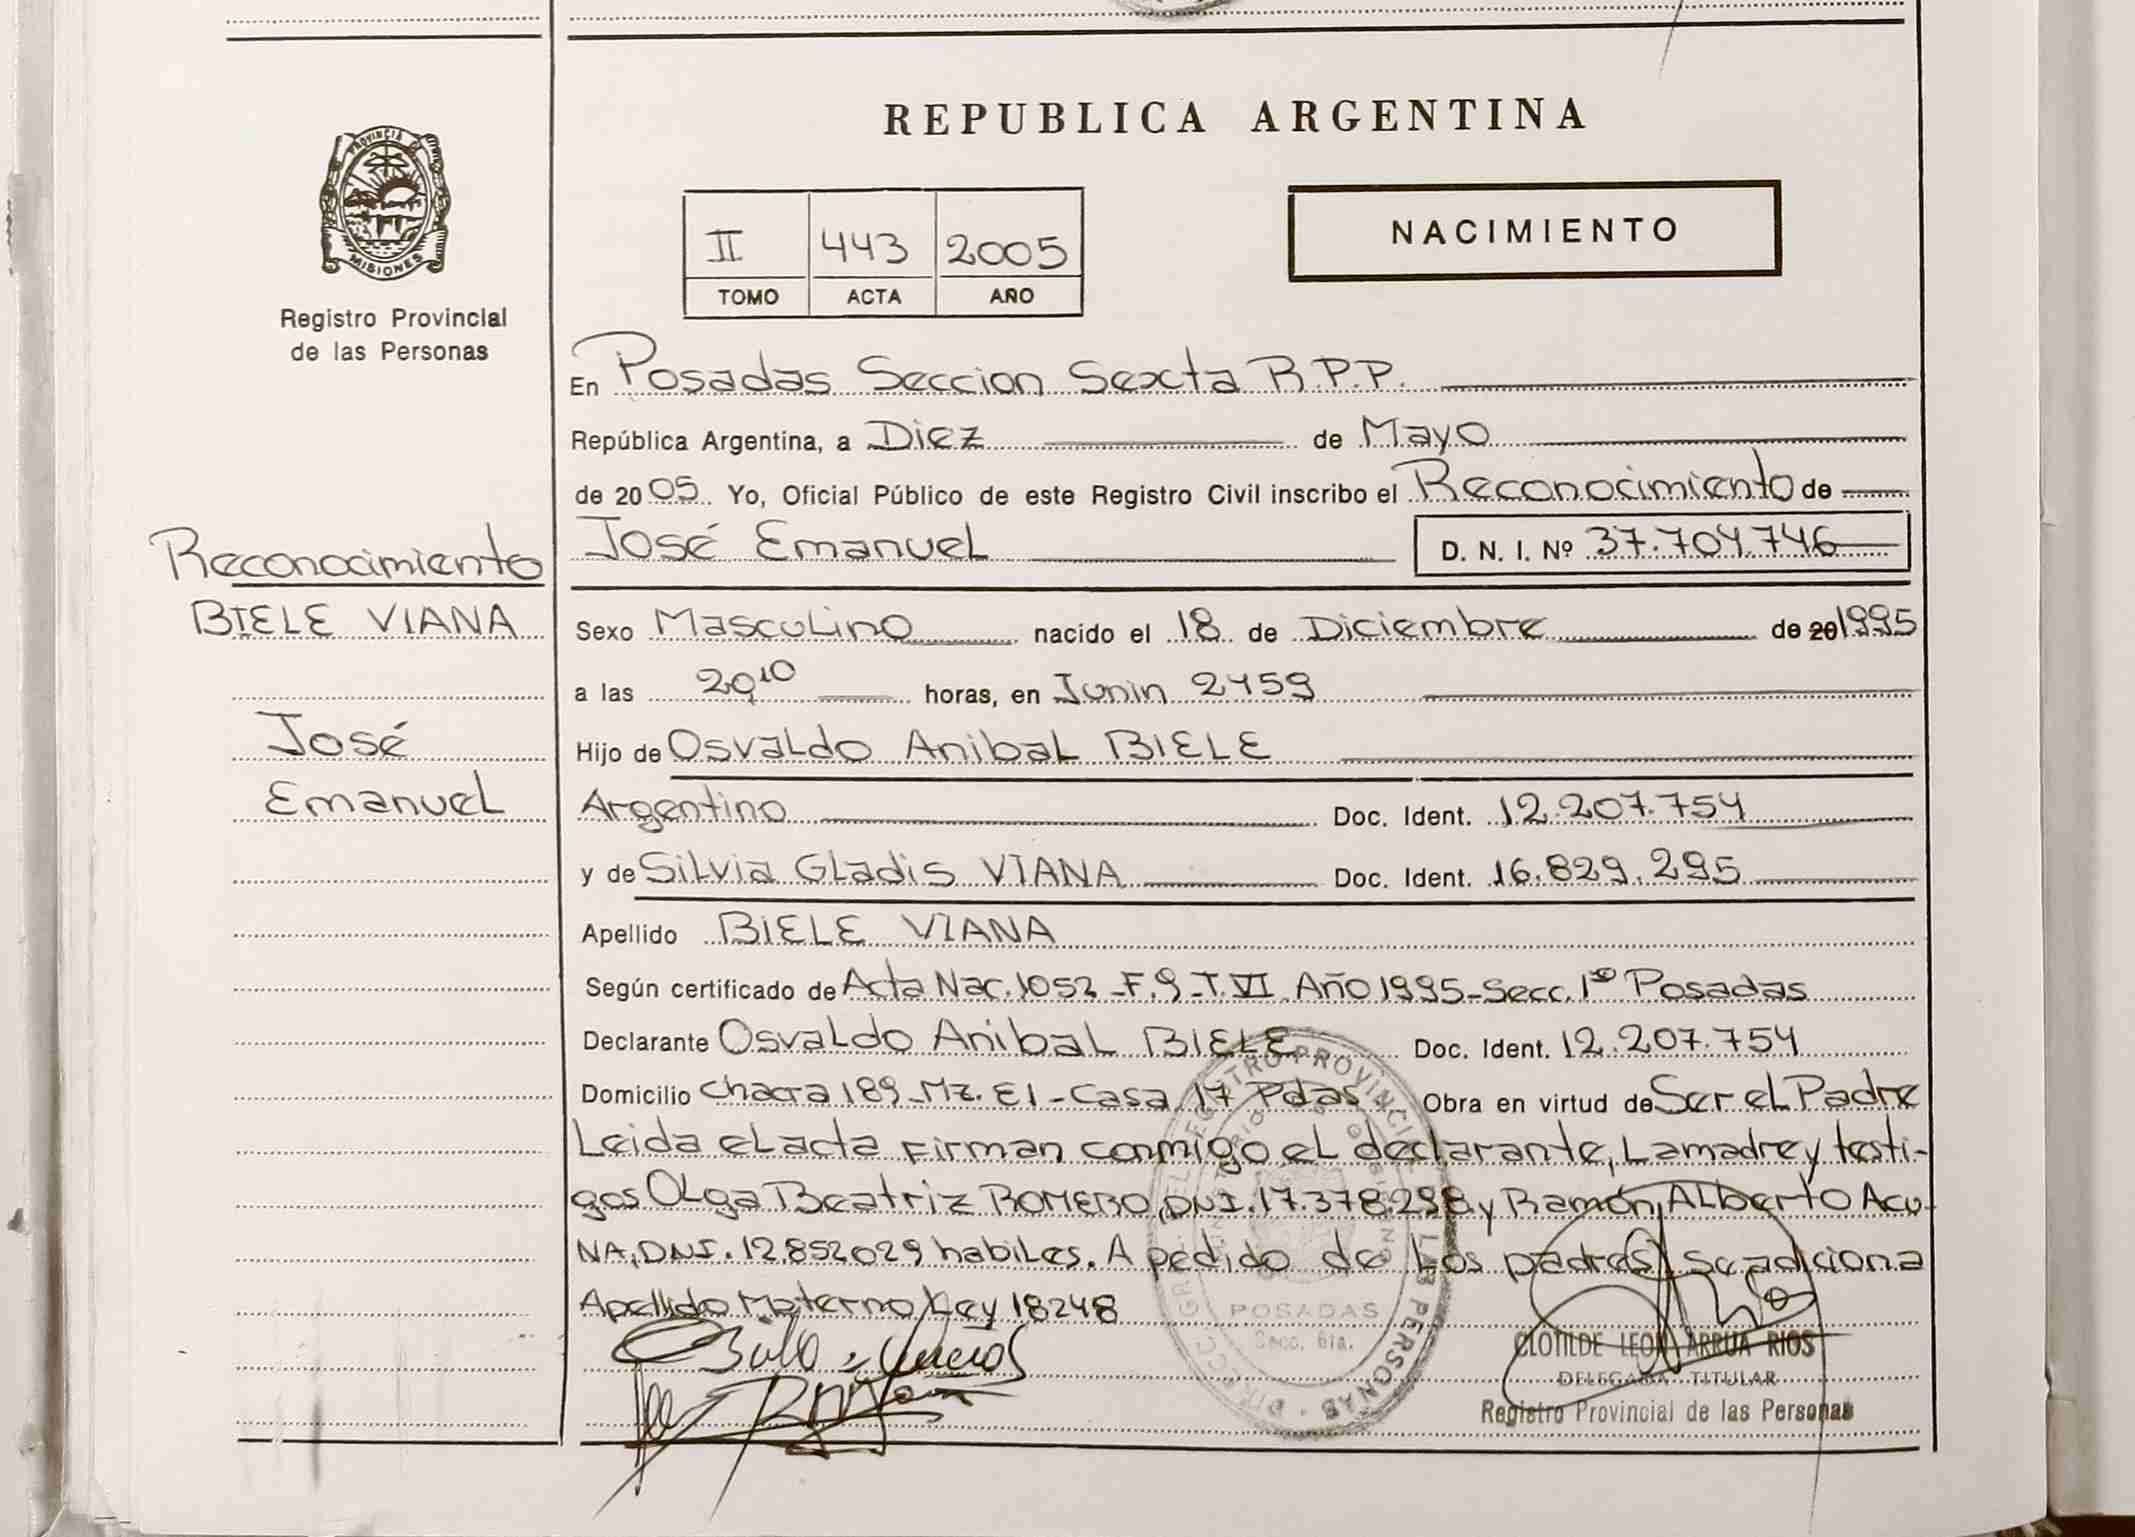 REPUBLICA ARGENTINA
PROVINCIA DE
MISIONES
Registro Provincial
de las Personas
II 443 2005
TOMO ACTA AÑO
NACIMIENTO
En Posadas Seccion Sexta R.P.P.
República Argentina, a Diez de Mayo
de 2005 Yo, Oficial Público de este Registro Civil inscribo el Reconocimiento de
José Emanuel D. N. I. Nº 37.704.746
Reconocimiento
BIELE VIANA
José
Emanuel
Sexo Masculino nacido el 18 de Diciembre de 20 1995
a las 20,10 horas, en Junin 2459
Hijo de Osvaldo Anibal BIELE
Argentino Doc. Ident. 12.207.754
y de Silvia Gladis VIANA Doc. Ident. 16.829.295
Apellido BIELE VIANA
Según certificado de Acta Nac. 1052 - F. 9 - T. VI Año 1995 - Secc. 1º Posadas
Declarante Osvaldo Anibal BIELE Doc. Ident. 12.207.754
Domicilio Chacra 189 - Mz. E1 - Casa 17 Pdas. Obra en virtud de Ser el Padre
Leida el acta firman conmigo el declarante, La madre y testi-
gos Olga Beatriz ROMERO, DNI. 17.378.298 y Ramón Alberto ACU-
ÑA, DNI. 12.852029 habiles. A pedido de los padres se adiciona
Apellido Materno Ley 18248
REGISTRO PROVINCIAL DE LAS PERSONAS
POSADAS
Secc. 6ta.
CLOTILDE LEON ARRUA RIOS
DELEGADA TITULAR
Registro Provincial de las Personas